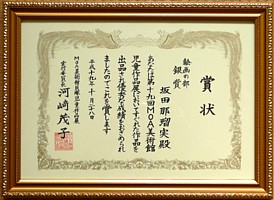 賞状
絵画の部
銀賞
坂田耶瑠実殿
あなたは第十九回MOA美術館
児童作品展においてすぐれた作品を
出品され優秀な成績をおさめられ
ましたのでこれを賞します
平成十九年十月二十八日
MOA美術館
実行委員長 河崎茂子